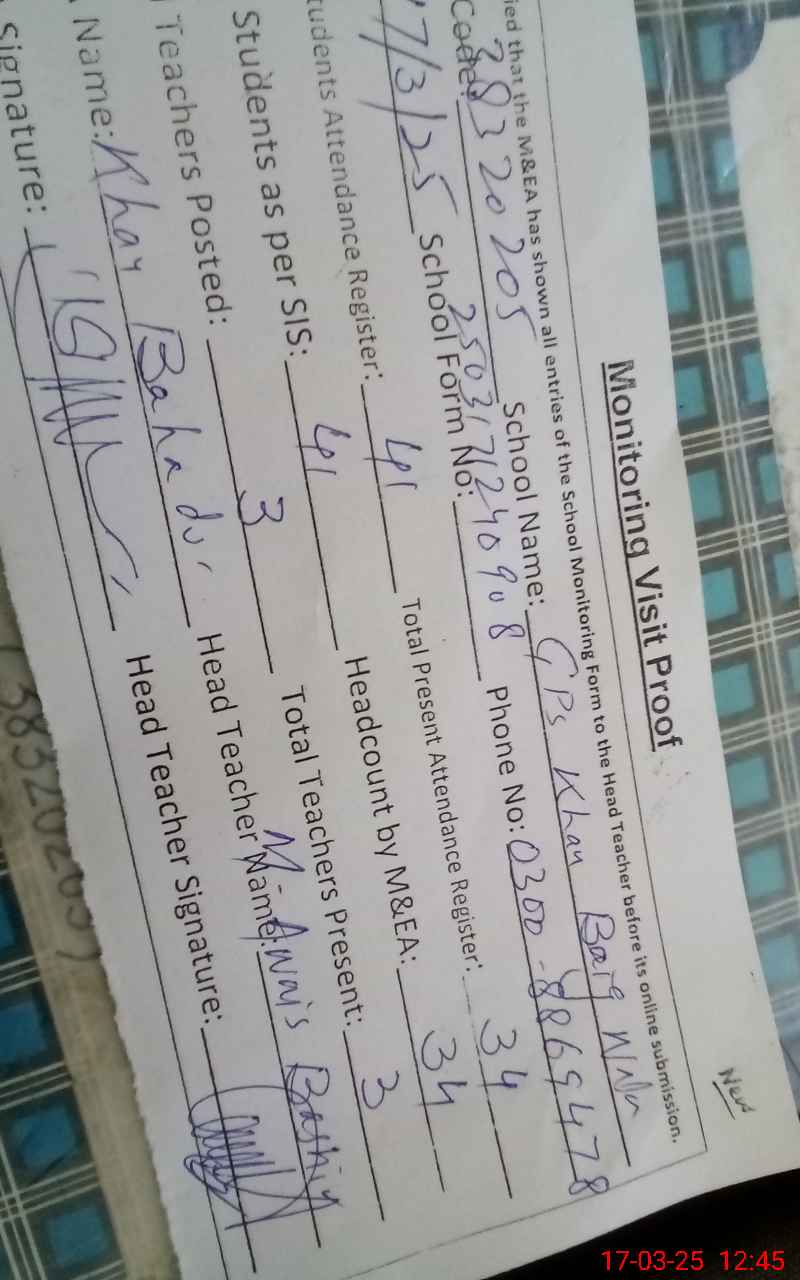 New
Monitoring Visit Proof
ied that the M&EA has shown all entries of the School Monitoring Form to the Head Teacher before its online submission.
Code: 38320205 School Name: GPS Khan Baig Wala
17/3/25 School Form No: 2503171240908 Phone No: 0300-8869478
tudents Attendance Register: 41 Total Present Attendance Register: 34
Students as per SIS: 41 Headcount by M&EA: 34
Teachers Posted: 3 Total Teachers Present: 3
Name: Khan Bahadur Head Teacher Name: M. Awais Bashir
Signature: Head Teacher Signature:
38320205)
17-03-25 12:45